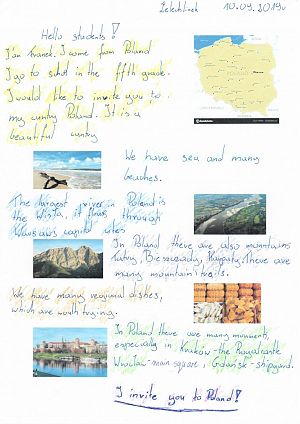 Żelechlinek 10.09.2019r
Hello students!
I'm Franek. I come from Poland
I go to schol in the fifth grade.
I would like to invite you to
my cuntry Poland. It is a
beautiful cuntry
We have sea and many
beaches.
The largest river in Poland is
the Wisła, it flows through
Warsaws capitol cites
In Poland there are also mountains
Tatry, Bieszczady, Karpaty. There are
many mountain trails.
We have many regional dishes,
which are worth trying.
In Poland there are many monuments,
especially in Kraków - the Royal
Wrocław - main square, Gdańsk - shipyard.
I invite you to Poland!